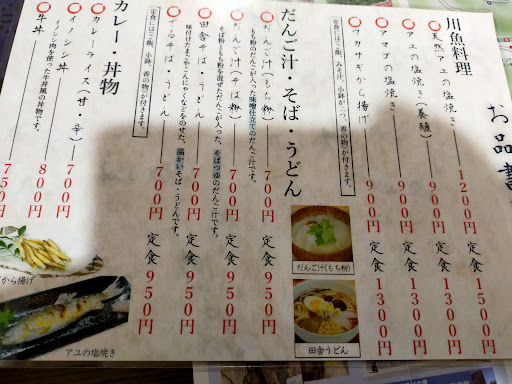 お品書
川魚料理
天然アユの塩焼き 1200円 定食 1500円
アユの塩焼き(養殖) 900円 定食 1300円
アマゴの塩焼き 900円 定食 1300円
アカザから揚げ 900円 定食 1300円
〔定食にはご飯、みそ汁、小鉢が一つ、香の物が付きます。〕
だんご汁・そば・うどん
だんご汁(もち粉) 700円 定食 950円
もち粉のだんごが入った味噌仕立てのだんご汁です。
だんご汁(そば粉) 700円 定食 950円
そば粉ともち粉を混ぜただんごが入った、そばつゆのだんご汁です。
田舎そば・うどん 700円 定食 950円
味付けたまごやこんにゃくなどをのせた、温かいそば・うどんです。
ざるそば・うどん 700円 定食 950円
〔定食にはご飯、小鉢、香の物が付きます。〕
カレー・丼物
カレーライス(甘・辛) 700円
イノシシ丼 800円
イノシシ肉を使った牛丼風の丼物です。
牛丼 750円
から揚げ
アユの塩焼き
だんご汁(もち粉)
田舎うどん